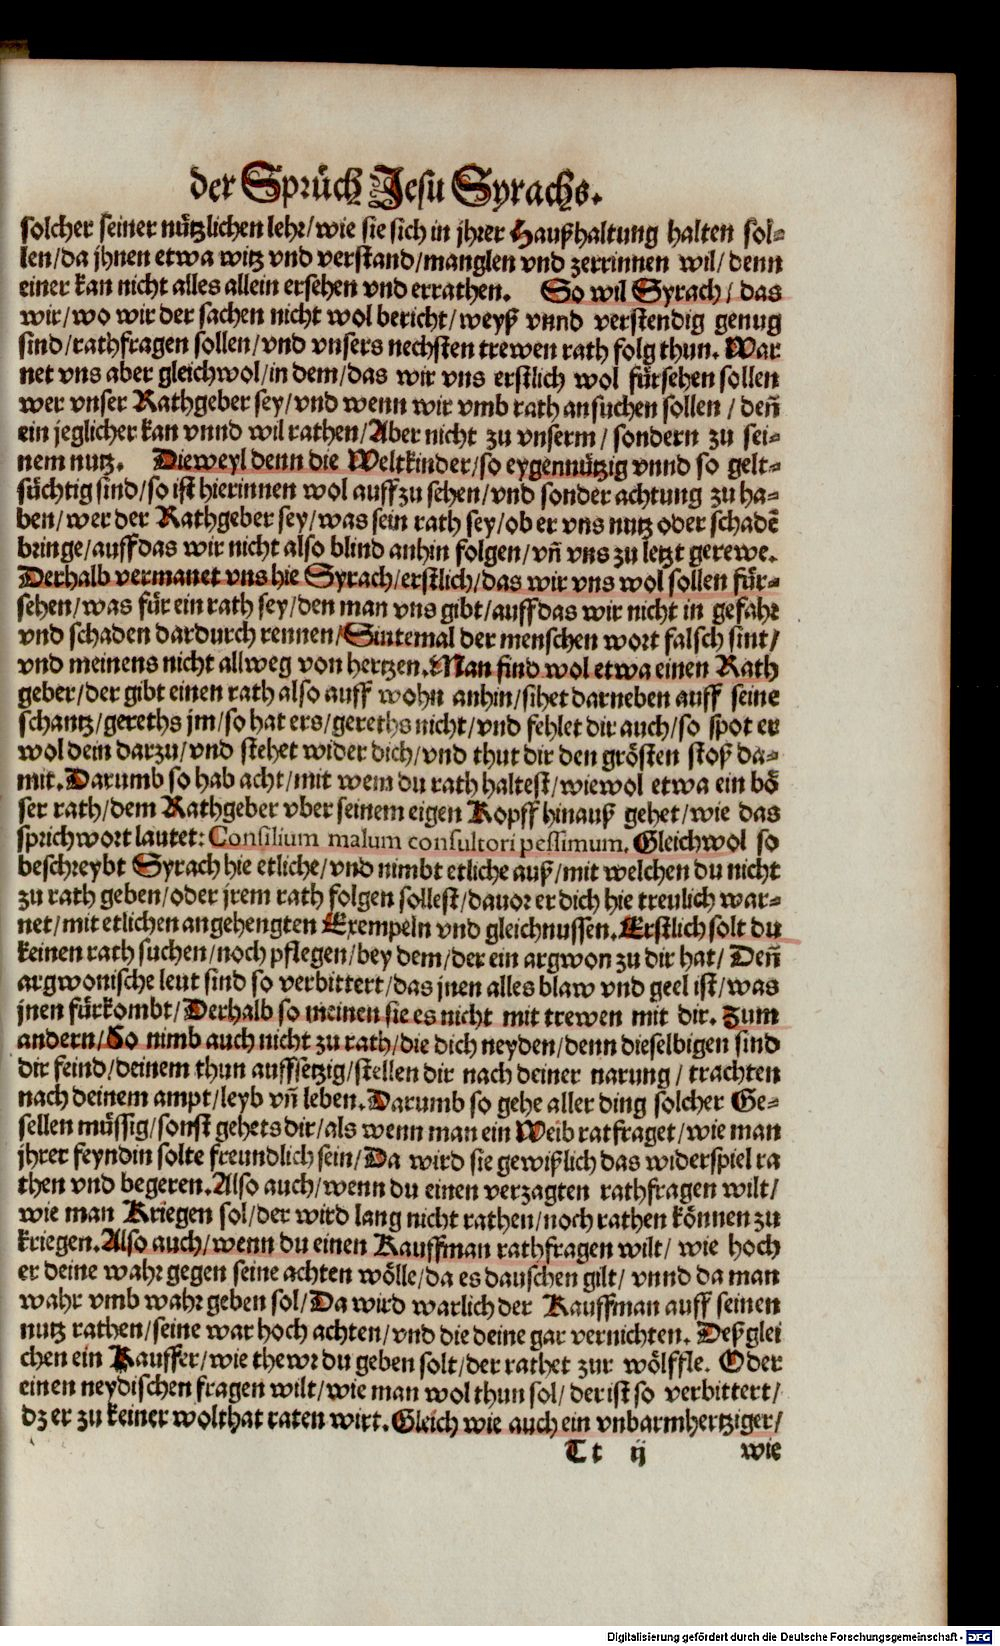 der Sprüch Jesu Syrachs.
solcher seiner nützlichen lehr/wie sie sich in jhrer Haußhaltung halten sol-
len/da jhnen etwa witz vnd verstand/manglen vnd zerrinnen wil/denn
einer kan nicht alles allein ersehen vnd errathen. So wil Syrach/das
wir/wo wir der sachen nicht wol bericht/weyß vnnd verstendig genug
sind/rathfragen sollen/vnd vnsers nechsten trewen rath folg thun. War
net vns aber gleichwol/in dem/das wir vns erstlich wol fürsehen sollen
wer vnser Rathgeber sey/vnd wenn wir vmb rath ansuchen sollen/deñ
ein jeglicher kan vnnd wil rathen/Aber nicht zu vnserm/sondern zu sei-
nem nutz. Dieweyl denn die Weltkinder/so eygennützig vnnd so gelt-
süchtig sind/so ist hierinnen wol auff zu sehen/vnd sonder achtung zu ha-
ben/wer der Rathgeber sey/was sein rath sey/ob er vns nutz oder schadē
bringe/auff das wir nicht also blind anhin folgen/vñ vns zu letzt gerewe.
Derhalb vermanet vns hie Syrach/erstlich/das wir vns wol sollen für-
sehen/was für ein rath sey/den man vns gibt/auff das wir nicht in gefahr
vnd schaden dardurch rennen/Sintemal der menschen wort falsch sint/
vnd meinens nicht allweg von hertzen. Man find wol etwa einen Rath
geber/der gibt einen rath also auff wohn anhin/sihet darneben auff seine
schantz/gereths jm/so hat ers/gereths nicht/vnd fehlet dir auch/so spot er
wol dein darzu/vnd stehet wider dich/vnd thut dir den grösten stoß da-
mit. Darumb so hab acht/mit wem du rath haltest/wiewol etwa ein bö
ser rath/dem Rathgeber vber seinem eigen Kopff hinauß gehet/wie das
sprichwort lautet: Consilium malum consultori pessimum. Gleichwol so
beschreybt Syrach hie etliche/vnd nimbt etliche auß/mit welchen du nicht
zu rath geben/oder jrem rath folgen sollest/dauor er dich hie treulich war-
net/mit etlichen angehengten Exempeln vnd gleichnussen. Erstlich solt du
keinen rath suchen/noch pflegen/bey dem/der ein argwon zu dir hat/Deñ
argwonische leut sind so verbittert/das jnen alles blaw vnd geel ist/was
jnen fürkombt/Derhalb so meinen sie es nicht mit trewen mit dir. Zum
andern/So nimb auch nicht zu rath/die dich neyden/denn dieselbigen sind
dir feind/deinem thun auffsetzig/stellen dir nach deiner narung/trachten
nach deinem ampt/leyb vñ leben. Darumb so gehe aller ding solcher Ge-
sellen müssig/sonst gehets dir/als wenn man ein Weib ratfraget/wie man
jhrer feyndin solte freundlich sein/Da wird sie gewißlich das widerspiel ra
then vnd begeren. Also auch/wenn du einen verzagten rathfragen wilt/
wie man Kriegen sol/der wird lang nicht rathen/noch rathen können zu
kriegen. Also auch/wenn du einen Kauffman rathfragen wilt/wie hoch
er deine wahr gegen seine achten wölle/da es dauschen gilt/vnnd da man
wahr vmb wahr geben sol/Da wird warlich der Kauffman auff seinen
nutz rathen/seine war hoch achten/vnd die deine gar vernichten. Deß glei
chen ein Kauffer/wie thewr du geben solt/der rathet zur wölffle. Oder
einen neydischen fragen wilt/wie man wol thun sol/der ist so verbittert/
dz er zu keiner wolthat raten wirt. Gleich wie auch ein vnbarmhertziger/
Tt ij wie
Digitalisierung gefördert durch die Deutsche Forschungsgemeinschaft - DFG